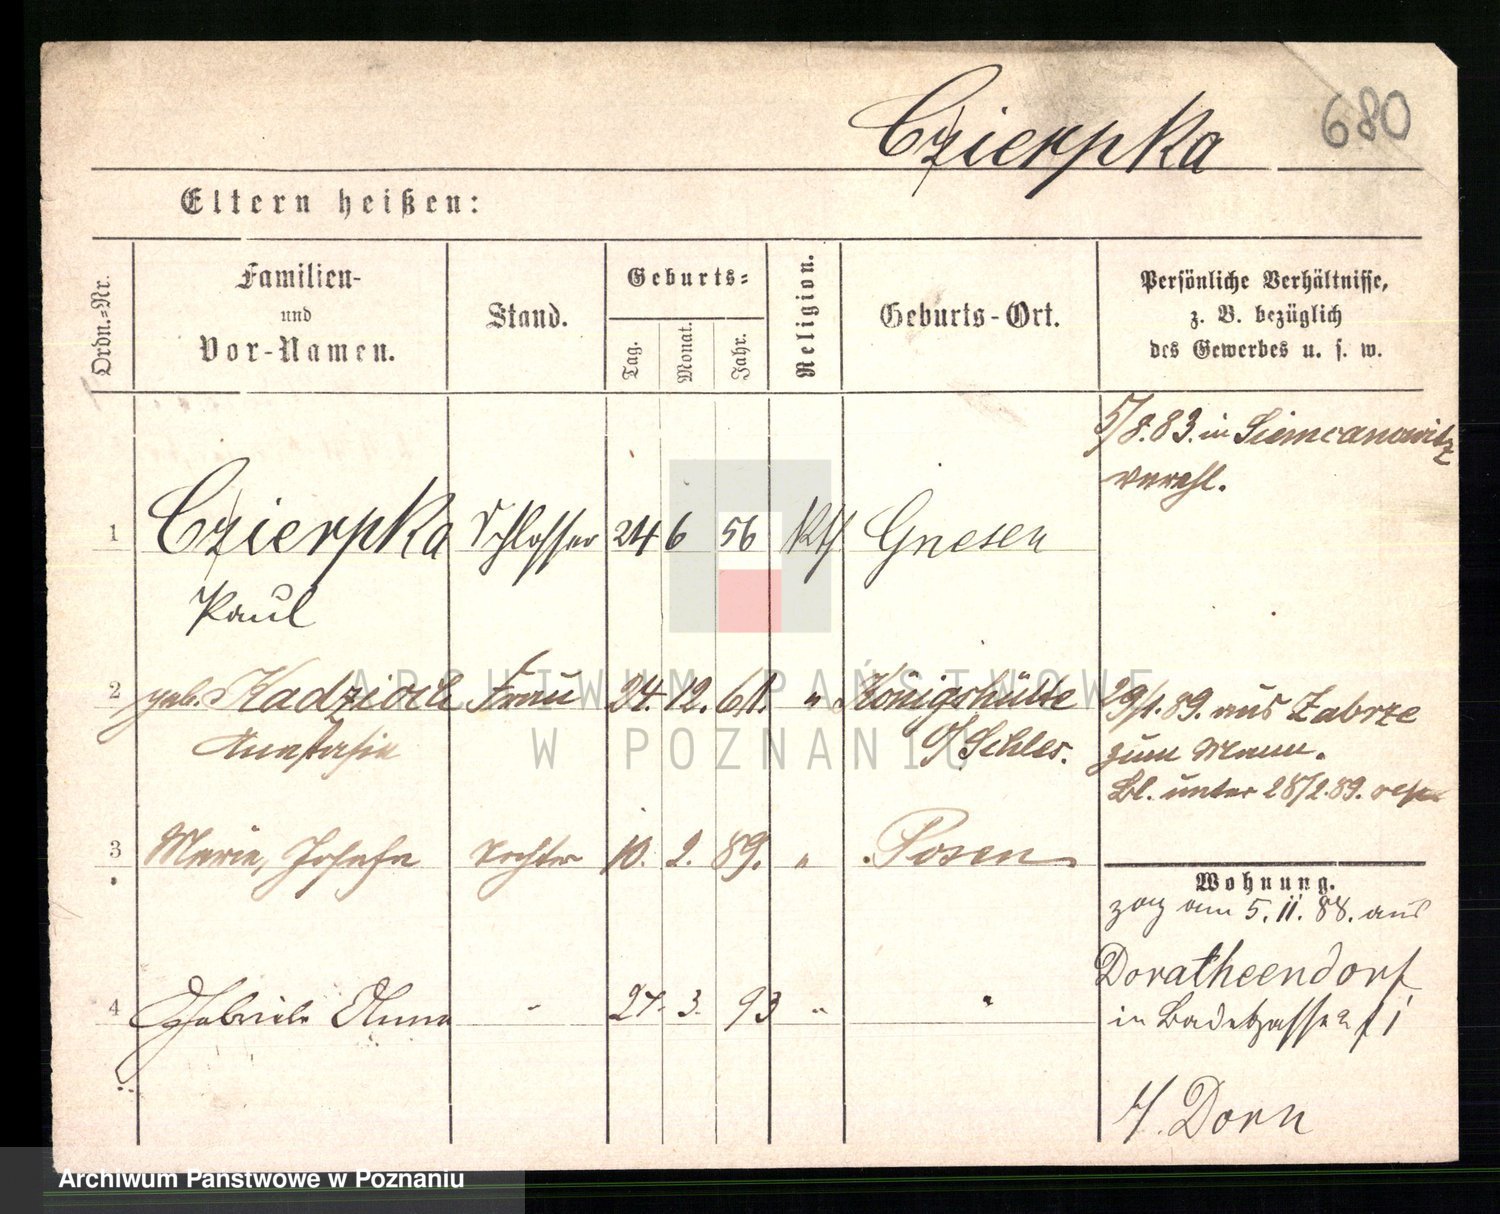 Czierpka
680
Eltern heißen:
Ordn.=Nr.
Familien-
und
Vor-Namen.
Stand.
Geburts=
Tag.
Monat.
Jahr.
Religion.
Geburts-Ort.
Persönliche Verhältnisse,
z. B. bezüglich
des Gewerbes u. s. w.
5/8.83. in Siemianowitz
verehl.
1 Czierpka Schlosser 24 6 56 kth Gnesen
Paul
2 geb. Kadzioch Frau 24. 12. 61. " Königshütte
Anastasia O/Schles.
29/1.89. aus Zabrze
zum Mann.
Bl. unter 28/2.89.
3 Marie, Josefa Tochter 10. 2. 89. " Posen
Wohnung.
zog am 5. 11. 88. aus
Doratheendorf
in Badegasse
4 Gabriele Anna - 27. 3. 93 " "
b/ Dorn
ARCHIWUM PAŃSTWOWE
W POZNANIU
Archiwum Państwowe w Poznaniu